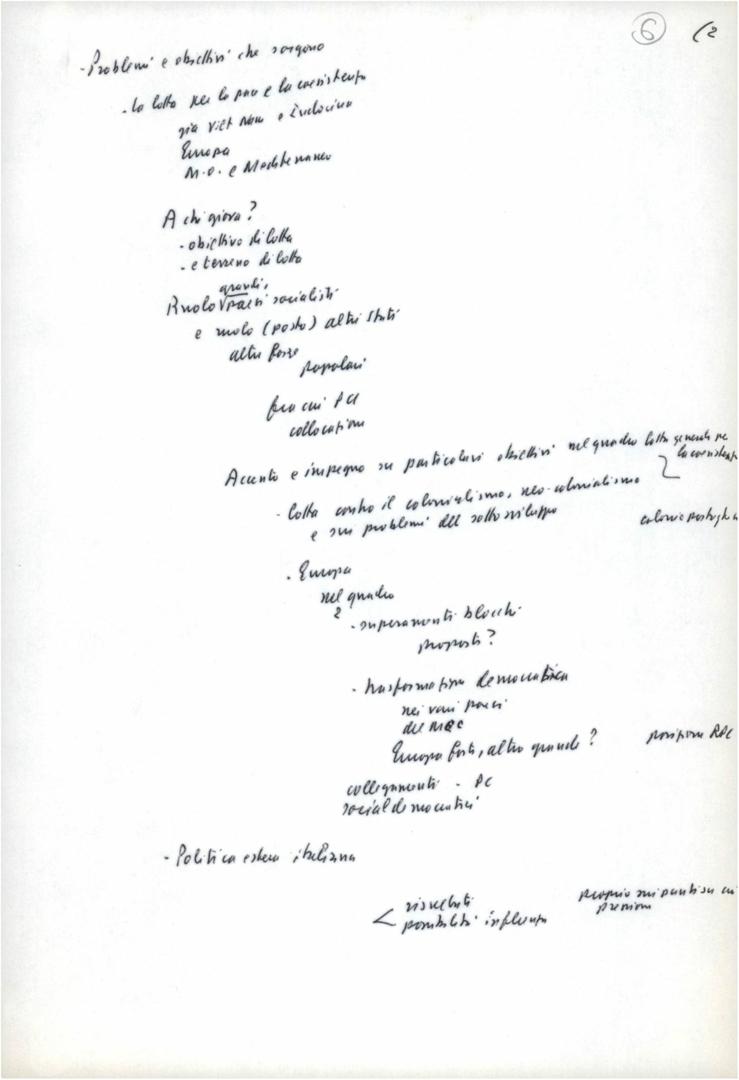 6 (2
- Problemi e obiettivi che sorgono
- La lotta per la pace e la coesistenza
già Viet Nam e Indocina
Europa
M.O. e Mediterraneo
A chi giova?
- obiettivo di lotta
- e terreno di lotta
grandi
Ruolo √ paesi socialisti
e ruolo (posto) altri Stati
altre forze
popolari
fra cui PCI
collocazione
Accento e impegno su particolari obiettivi nel quadro lotta generale per
la coesistenza
- lotta contro il colonialismo, neo-colonialismo
e sui problemi del sottosviluppo
colonie
- Europa
nel quadro
2 - superamento blocchi
proposte?
- trasformazione democratica
nei vari paesi
del MEC
Europa forte, altro grande?
posizione RPC
collegamenti - PC
socialdemocratici
- Politica estera italiana
< risultati
possibilità influenza
proprio sui punti su cui